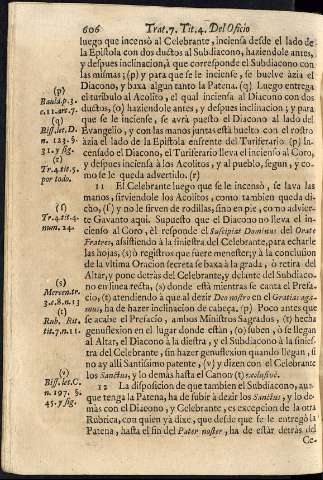 606 Trat.7. Tit.4. Del Oficio
luego que incensò al Celebrante, inciensa desde el lado de
la Epistola con dos ductos al Subdiacono, haziendole antes,
y despues inclinacion, à que corresponde el Subdiacono con
las mismas; (p) y para que se le inciense, se buelve àzia el
Diacono, y baxa algun tanto la Patena. (q) Luego entrega
el turibulo al Acolito, el qual inciensa al Diacono con dos
ductos, (o) haziendole antes, y despues inclinacion; y para
que se le inciense, se avrà puesto el Diacono al lado del
Evangelio, y con las manos juntas està buelto con el rostro
àzia el lado de la Epistola enfrente del Turiferario. (p) In-
censado el Diacono, el Turiferario lleva el incienso al Coro,
y despues inciensa à los Acolitos, y al pueblo, segun, y co-
mo se le queda advertido. (r)
11 El Celebrante luego que se le incensò, se lava las
manos, sirviendole los Acolitos, como tambien queda di-
cho, (s) y no le sirven de rodillas, sino en pie, como advier-
te Gavanto aqui. Supuesto que el Diacono no lleva el in-
cienso al Coro, èl responde el Suscipiat Dominus del Orate
Fratres, assistiendo à la siniestra del Celebrante, para echarle
las hojas, (s) ò registros que fuere menester; y à la conclusion
de la vltima Oracion secreta se baxa à la grada, ò retira del
Altar, y pone detràs del Celebrante, y delante del Subdiaco-
no en linea recta, (s) donde està mientras se canta el Prefa-
cio, (t) atendiendo à que al dezir Deo nostro en el Gratias aga-
mus, ha de hazer inclinacion de cabeça. (p) Poco antes que
se acabe el Prefacio, ambos Ministros Sagrados, (t) hecha
genuflexion en el lugar donde estàn, (o) suben, ò se llegan
al Altar, el Diacono à la diestra, y el Subdiacono à la sinies-
tra del Celebrante, sin hazer genuflexion quando llegan, si
no ay alli Santissimo patente, (v) y dizen con el Celebrante
los Sanctus, y lo demàs hasta el Canon (t) exclusivè.
12 La disposicion de que tambien el Subdiacono, aun-
que tenga la Patena, ha de subir à dezir los Sanctus, y lo de-
màs con el Diacono, y Celebrante, es excepcion de la otra
Rubrica, con quien yà dixe, que desde que se le entregò la
Patena, hasta el fin del Pater noster, ha de estàr detràs del
Ce-
(p)
Bauld.p.3.
c.11.art.7.
(q)
Biss.let.D.
n. 123. §.
31.y sig.
(r)
Tr.4.tit.5.
por todo.
(s)
Tr.4.tit.4.
num.24.
(s)
Mercen.tr.
3.c.8.n.13
(t)
Rub. Rit.
tit.7.n.11.
(v)
Biss.let.C.
n. 197. §.
45.y sig.